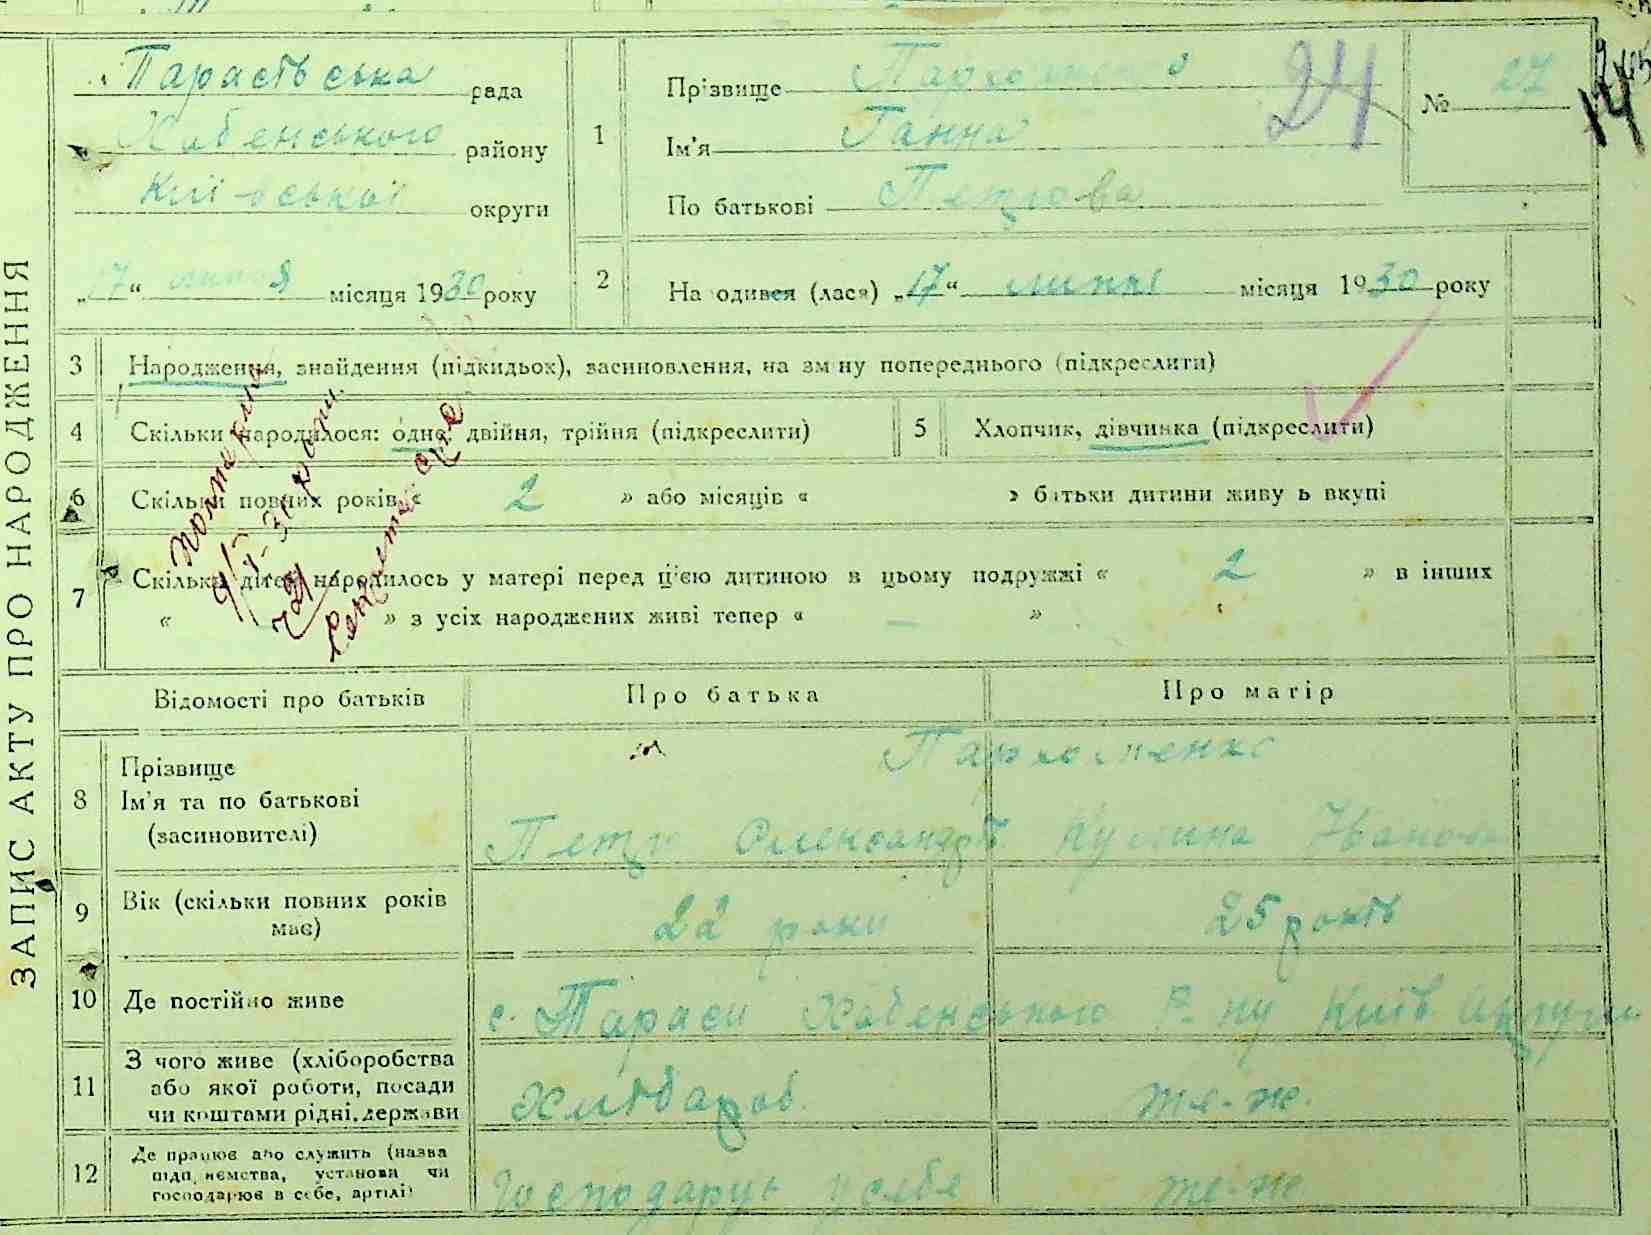 ЗАПИС АКТУ ПРО НАРОДЖЕННЯ
Тарасівська рада
Хабенського району
Київської округи
„17“ липня місяця 1930 року
1
Прізвище Пархоменко
Ім'я Ганна
По батькові Петрова
24
№ 27
14
2
На одився (лася) „17“ липня місяця 1930 року
3 Народження, знайдення (підкидьох), засиновлення, на зм ну попереднього (підкреслити)
4 Скільки народилося: одно, двійня, трійня (підкреслити)
5 Хлопчик, дівчинка (підкреслити)
6 Скільки повних років « 2 » або місяців « » батьки дитини живу ь вкупі
7 Скільки дітей народилось у матері перед ц'єю дитиною в цьому подружжі « 2 » в інших
« » з усіх народжених живі тепер « — »
Відомості про батьків
Про батька
Про матір
8
Прізвище
Ім'я та по батькові
(засиновителі)
Пархоменко
Петро Олександр. Кулина Іванов
9 Вік (скільки повних років має)
22 роки
25 років
10 Де постійно живе
с. Тараси Хабенського Р-ну Київ Округи
11 З чого живе (хліборобства
або якої роботи, посади
чи коштами рідні, держави
Хлібороб.
те-ж.
12 Де працює або служить (назва
підп, ємства, установи чи
господарює в себе, артілі)
Господарує у себе
те-ж